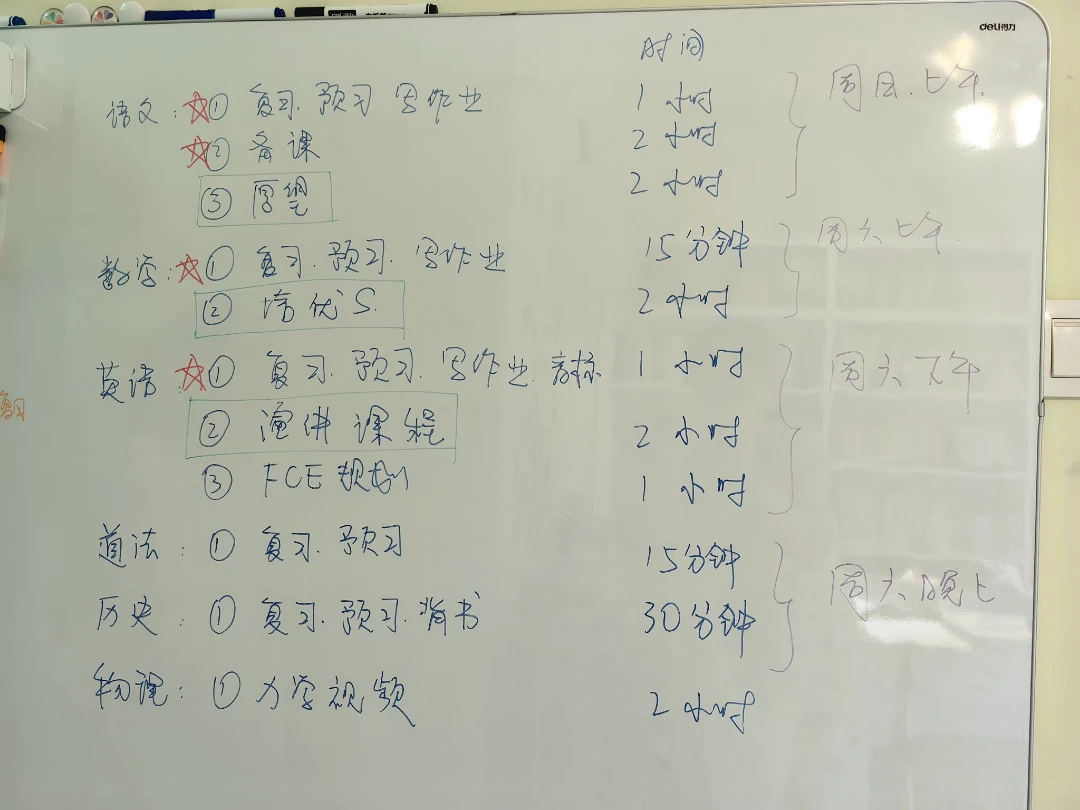 deli得力
时间
语文: ☆① 复习. 预习 写作业 1小时 周日.上午.
☆② 备课 2小时
③ 2小时
数学: ☆① 复习. 预习. 写作业 15分钟 周六上午.
② 培优S. 2小时
英语: ☆① 复习. 预习. 写作业. 1小时 周六下午
② 演讲课程 2小时
③ FCE规划 1小时
道法: ① 复习. 预习 15分钟 周六晚上
历史: ① 复习. 预习. 背书 30分钟
物理: ① 力学视频 2小时
复习